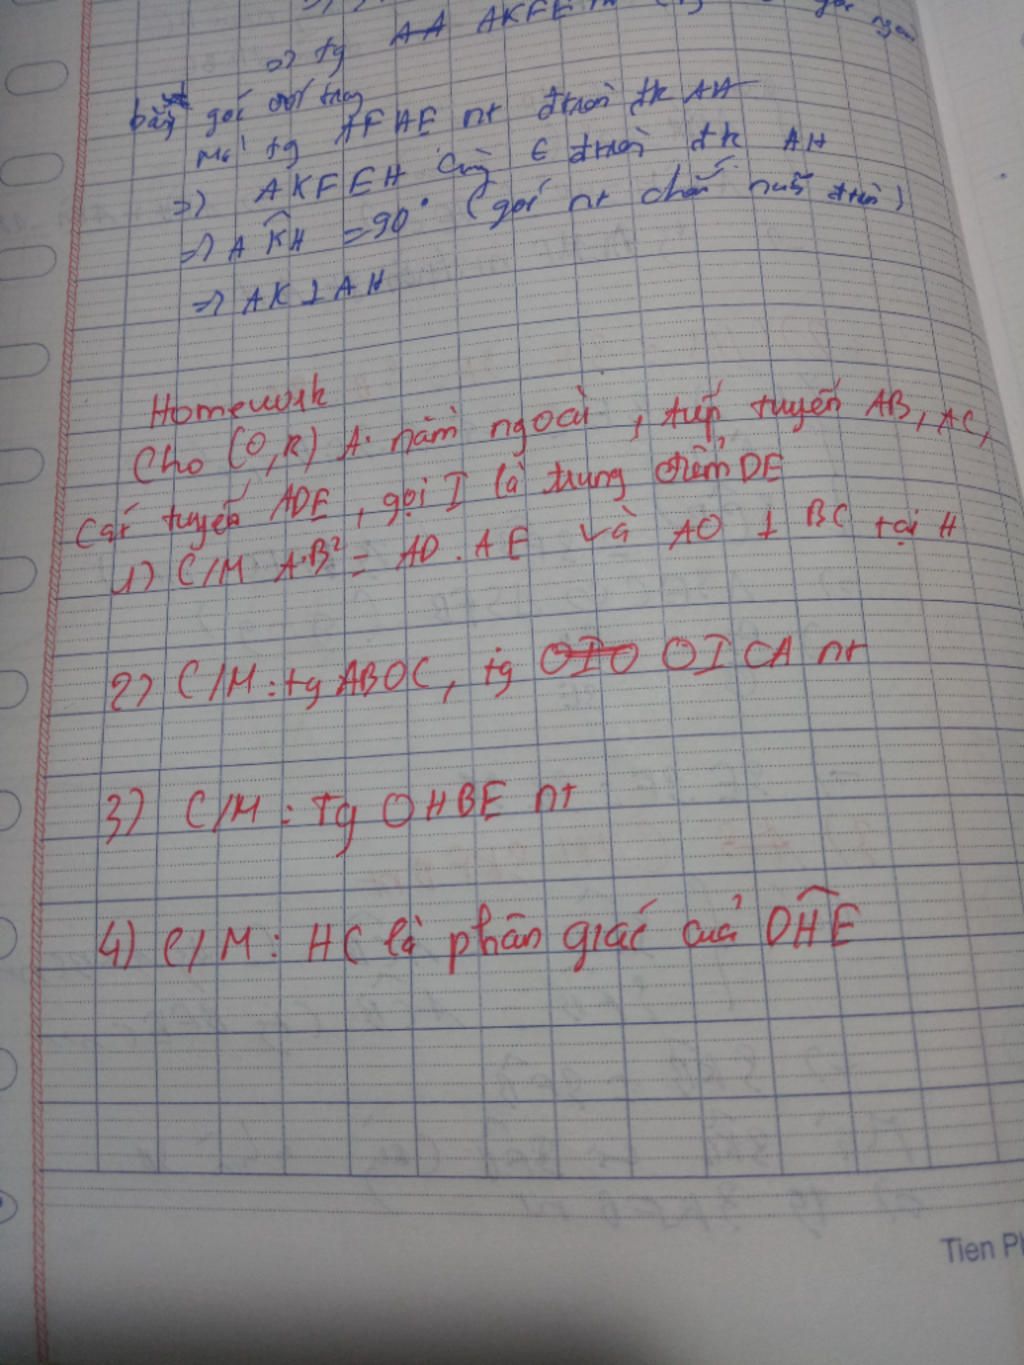 => tg AA AKFE nt
bằng góc đối trong
Mà tg AFHE nt đtròn đk AH
=> AKFEH cùng ∈ đtròn đk AH
=> AKH = 90° (góc nt chắn nửa đtròn)
=> AK ⊥ AH
Homework
Cho (O,R) A nằm ngoài, tiếp tuyến AB, AC,
Cát tuyến ADE, gọi I là trung điểm DE
1) C/M A.B² = AD.AE và AO ⊥ BC tại H
2) C/M: tg ABOC, tg OIO OICA nt
3) C/M: tg OHBE nt
4) C/M: HC là phân giác của DHE
Tien